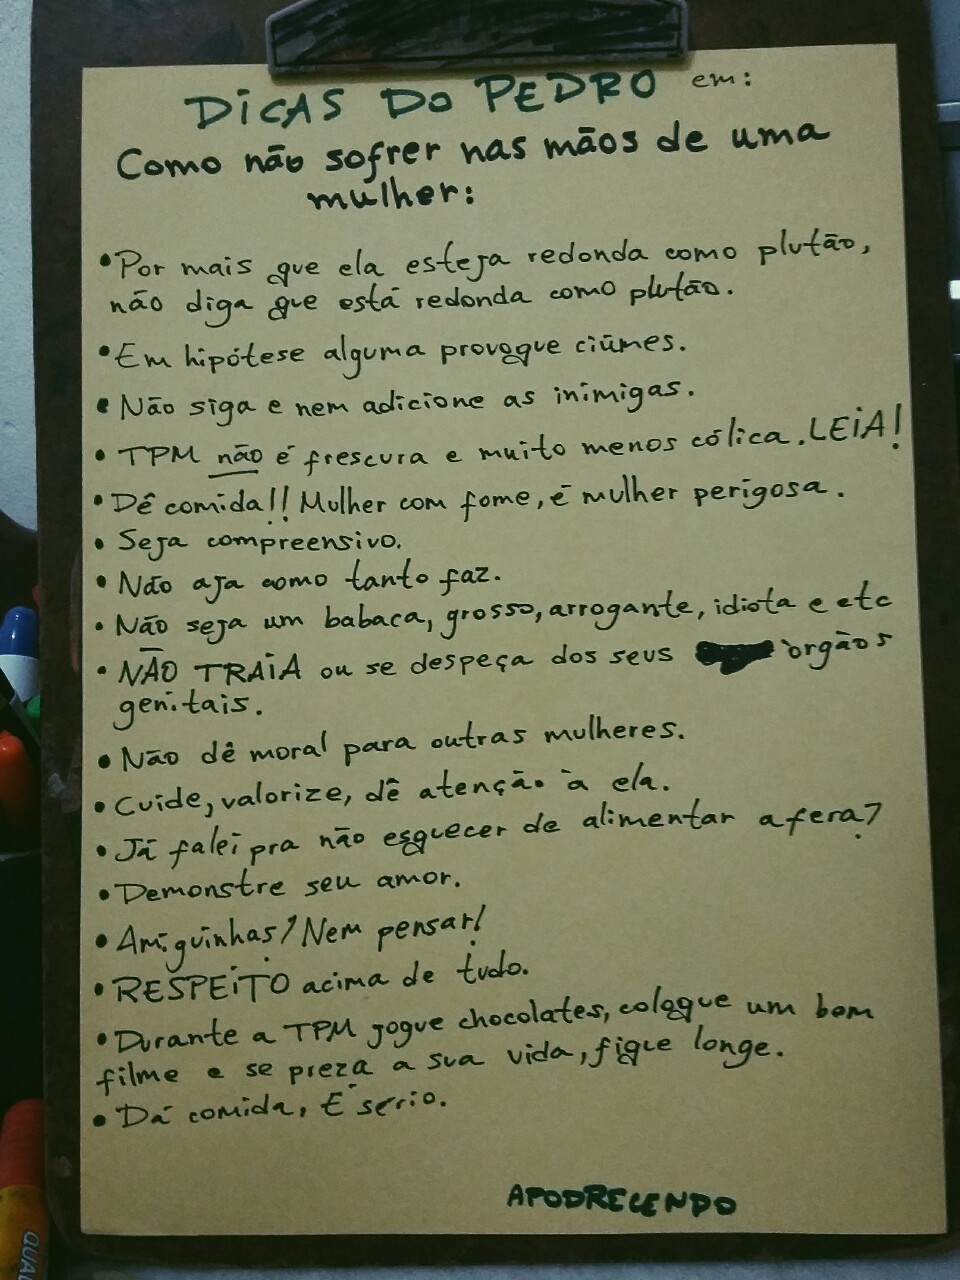 DICAS DO PEDRO em:
Como não sofrer nas mãos de uma
mulher:
• Por mais que ela esteja redonda como plutão,
não diga que está redonda como plutão.
• Em hipótese alguma provoque ciúmes.
• Não siga e nem adicione as inimigas.
• TPM não é frescura e muito menos cólica. LEIA!
• Dê comida!! Mulher com fome, é mulher perigosa.
• Seja compreensivo.
• Não aja como tanto faz.
• Não seja um babaca, grosso, arrogante, idiota e etc
• NÃO TRAIA ou se despeça dos seus òrgãos
genitais.
• Não dê moral para outras mulheres.
• Cuide, valorize, dê atenção à ela.
• Já falei pra não esquecer de alimentar a fera?
• Demonstre seu amor.
• Amiguinhas? Nem pensar!
• RESPEITO acima de tudo.
• Durante a TPM jogue chocolates, coloque um bom
filme e se preza a sua vida, fique longe.
• Dá comida, É sério.
APODRECENDO